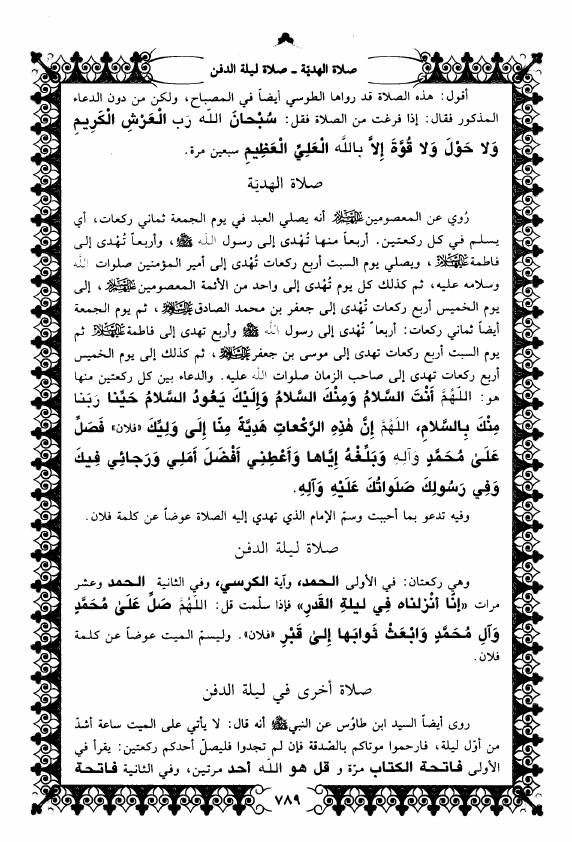 صلاة الهديّة ـ صلاة ليلة الدفن
أقول: هذه الصلاة قد رواها الطوسي أيضاً في المصباح، ولكن من دون الدعاء
المذكور فقال: إذا فرغت من الصلاة فقل: سُبْحانَ اللّه رَبِ الْعَرْشِ الْكَرِيمِ
وَلا حَوْلَ وَلا قُوَّةَ إِلاَّ بِاللّه الْعَلِيِّ الْعَظِيمِ سبعين مرة.
صلاة الهديّة
رُوي عن المعصومين عليهم السلام أنه يصلي العبد في يوم الجمعة ثماني ركعات، أي
يسلم في كل ركعتين. أربعاً منها تُهدى إلى رسول اللّه ﷺ، وأربعاً تُهدى إلى
فاطمة عليها السلام، ويصلي يوم السبت أربع ركعات تُهدى إلى أمير المؤمنين صلوات اللّه
وسلامه عليه، ثم كذلك كل يوم تُهدى إلى واحد من الأئمة المعصومين عليهم السلام، إلى
يوم الخميس أربع ركعات تُهدى إلى جعفر بن محمد الصادق عليه السلام، ثم يوم الجمعة
أيضاً ثماني ركعات: أربعاً تُهدى إلى رسول اللّه ﷺ وأربع تهدى إلى فاطمة عليها السلام ثم
يوم السبت أربع ركعات تهدى إلى موسى بن جعفر عليه السلام، ثم كذلك إلى يوم الخميس
أربع ركعات تُهدى إلى صاحب الزمان صلوات اللّه عليه. والدعاء بين كل ركعتين منها
هو: اللّهُمَّ أَنْتَ السَّلامُ وَمِنْكَ السَّلامُ وَإِلَيْكَ يَعُودُ السَّلامُ حَيِّنا رَبَنا
مِنْكَ بِالسَّلامِ، اللّهُمَّ إِنَّ هٰذِهِ الرَّكَعاتِ هَدِيَّةٌ مِنَّا إِلَى وَلِيِّكَ «فلان» فَصَلِّ
عَلَىٰ مُحَمَّدٍ وَآلِهِ وَبَلِّغْهُ إِيَّاها وَأَعْطِنِي أَفْضَلَ أَمَلِي وَرَجائِي فِيكَ
وَفِي رَسُولِكَ صَلَواتُكَ عَلَيْهِ وَآلِهِ.
وفيه تدعو بما أحببت وسمّ الإمام الذي تهدي إليه الصلاة عوضاً عن كلمة فلان.
صلاة ليلة الدفن
وهي ركعتان: في الأولى الحمد، وآية الكرسي، وفي الثانية الحمد وعشر
مرات «إِنَّا أَنْزَلناه فِي ليلةِ القَدرِ» فإذا سلّمت قل: اللّهُمَّ صَلِّ عَلَىٰ مُحَمَّدٍ
وَآلِ مُحَمَّدٍ وَابْعَثْ ثَوابَها إِلىٰ قَبْرِ «فلان». وليسمّ الميت عوضاً عن كلمة
فلان.
صلاة أخرى في ليلة الدفن
روى أيضاً السيد ابن طاوُس عن النبي ﷺ أنه قال: لا يأتي على الميت ساعة أشدّ
من أوّل ليلة، فارحموا موتاكم بالصّدقة فإن لم تجدوا فليصلّ أحدكم ركعتين: يقرأ في
الأولى فاتحة الكتاب مرّة و قل هو اللّه أحد مرتين، وفي الثانية فاتحة
٧٨٩